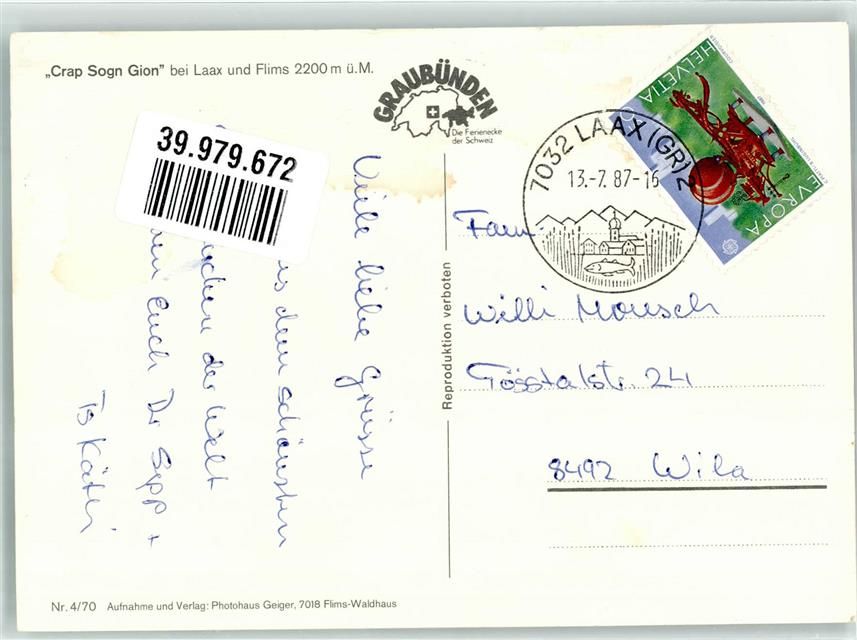 „Crap Sogn Gion” bei Laax und Flims 2200 m ü.M.
GRAUBÜNDEN
Die Ferienecke
der Schweiz
39.979.672
7032 LAAX (GR) 2
13.-7.87-16
HELVETIA
EUROPA
Viele liebe Grüsse
dem schönsten
der Welt
Euch Dr Sepp +
Ts Käthi
Reproduktion verboten
Fam.
Willi Monsch
Tösstalstr. 24
8492 Wila
Nr. 4/70 Aufnahme und Verlag: Photohaus Geiger, 7018 Flims-Waldhaus